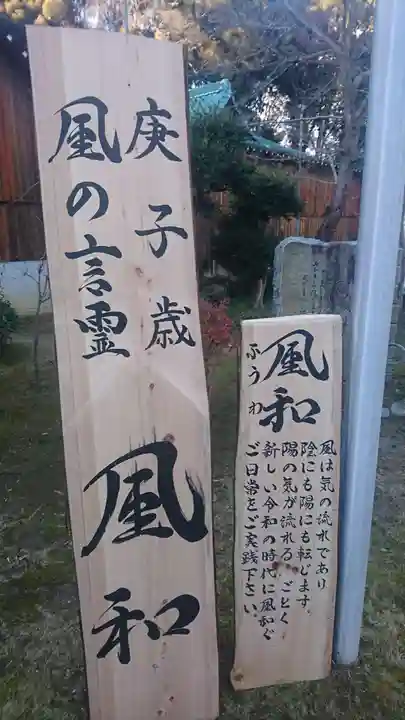 庚子歳
風の言霊
風和
風和
ふうわ
風は気の流れであり
陰にも陽にも転じます。
陽の気が流れる、ごとく
新しい令和の時代に風和ぐ
ご日常をご実践下さい。